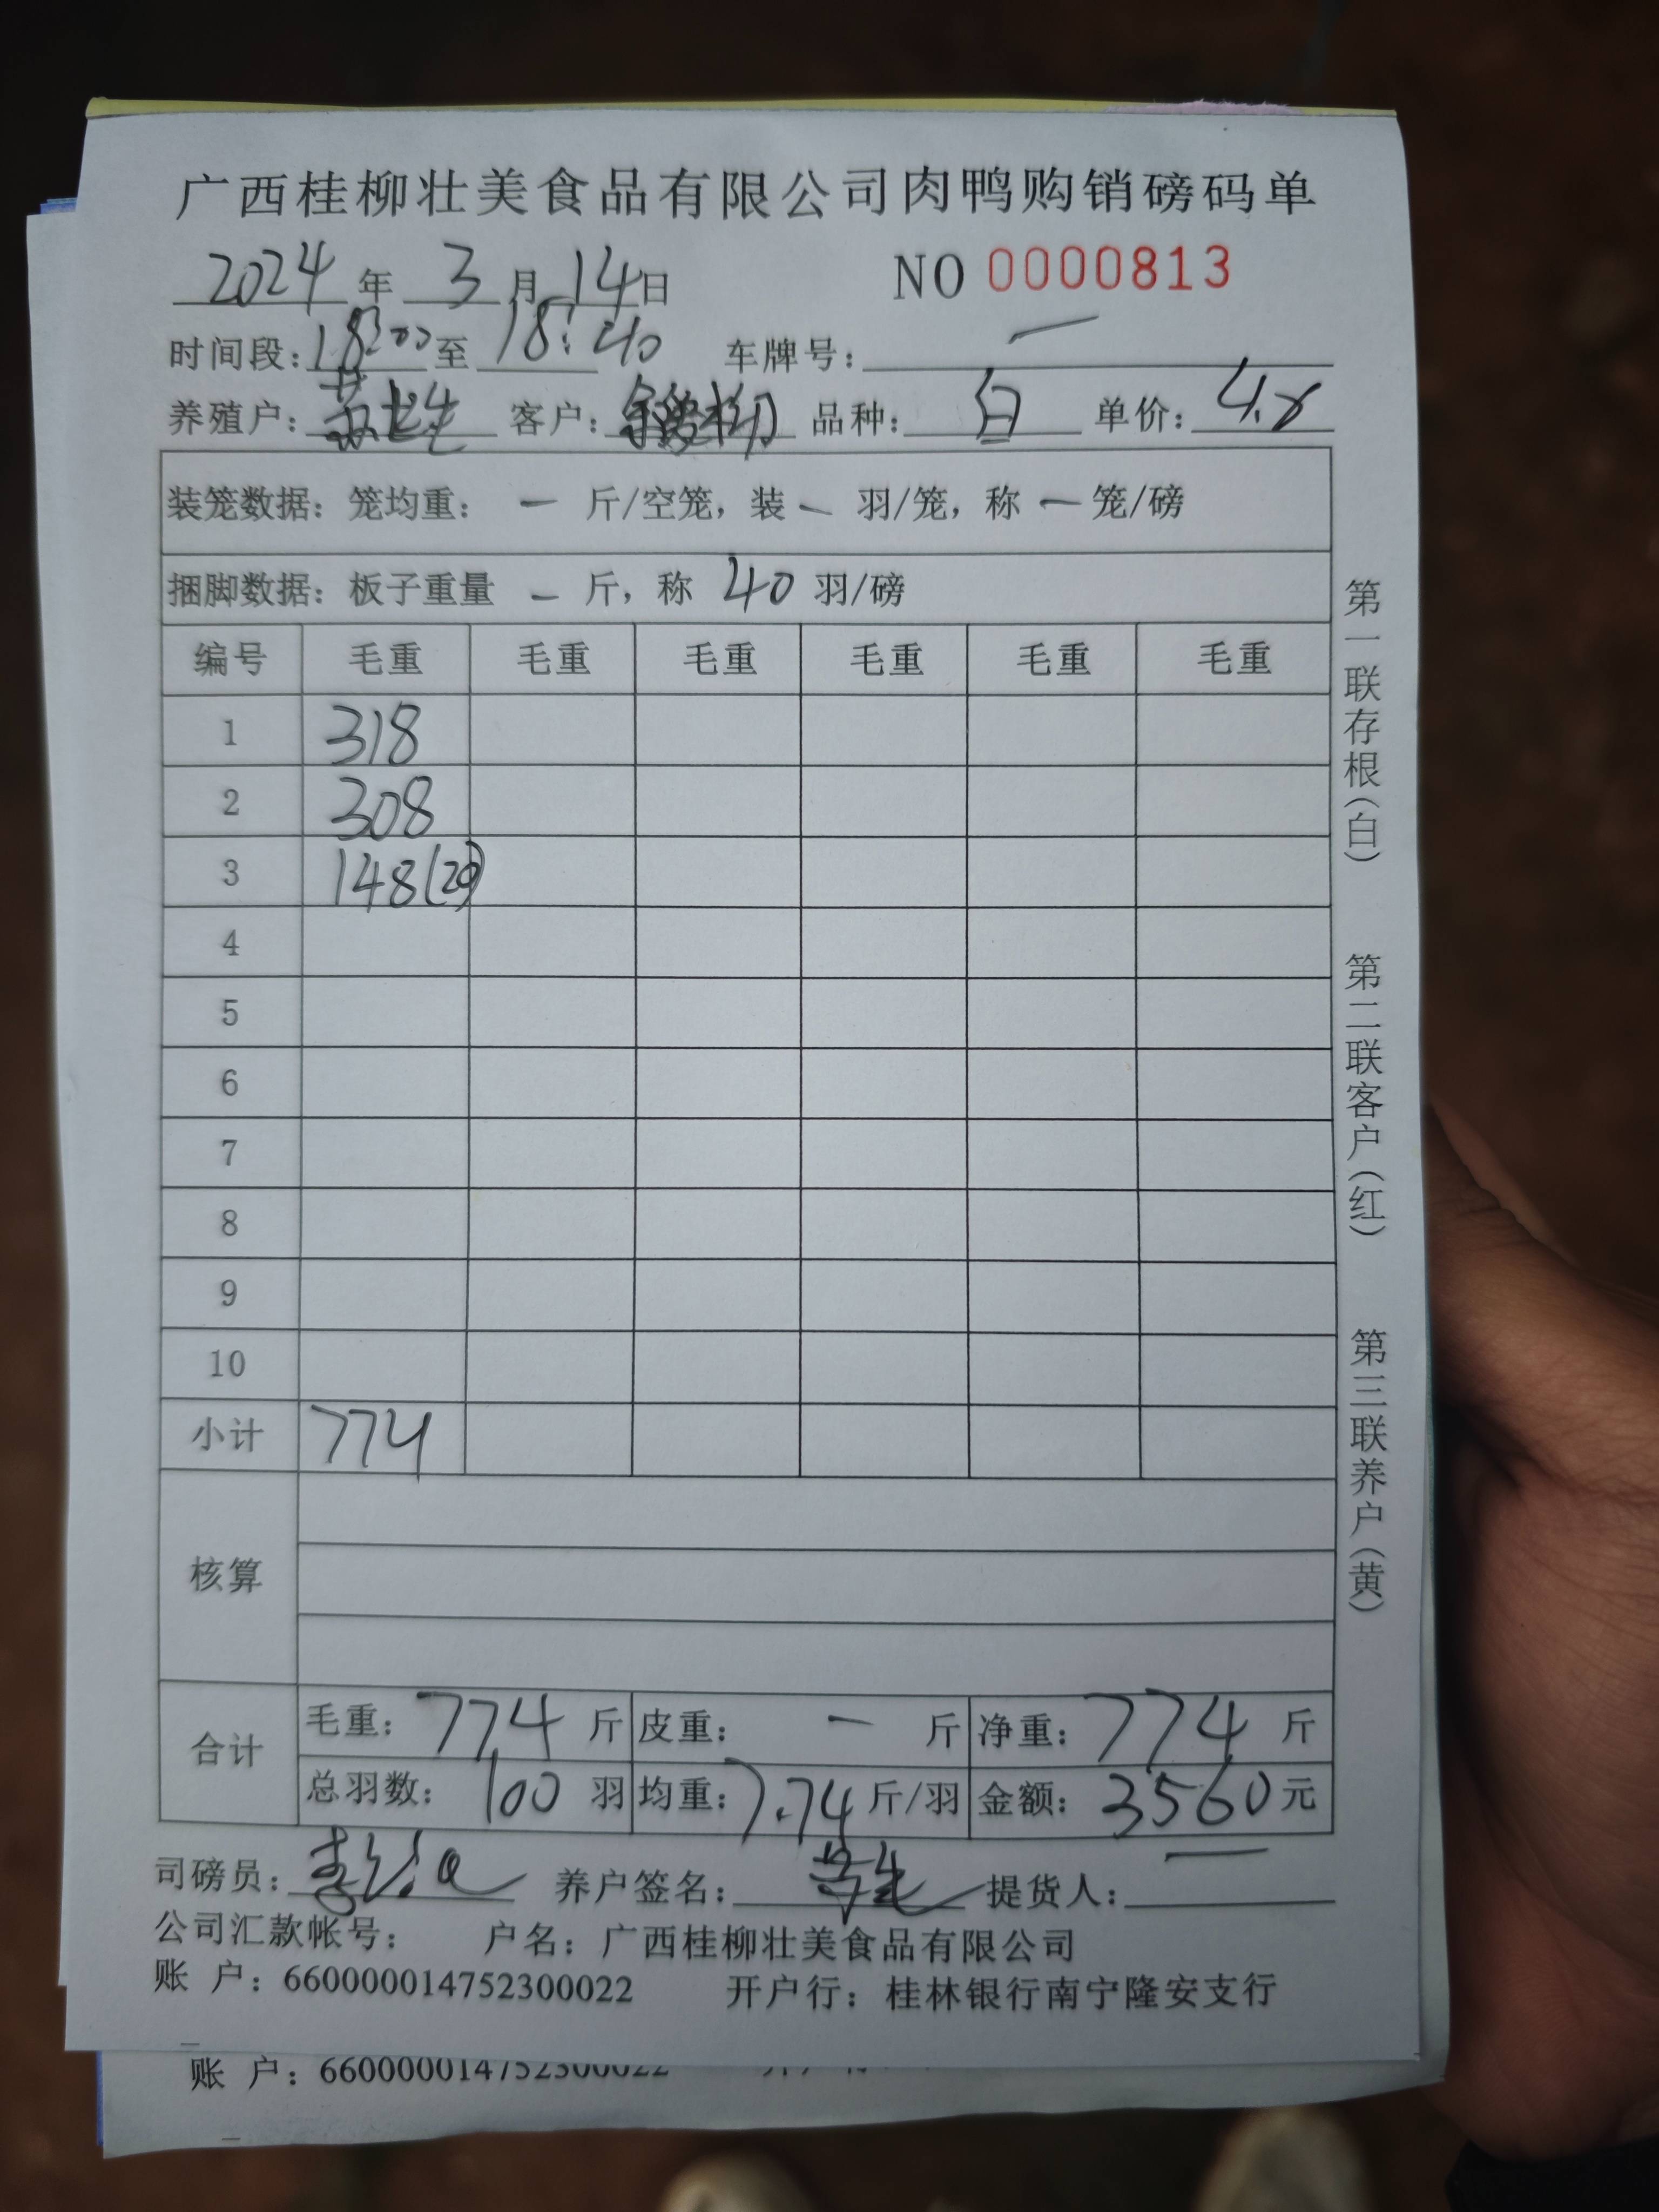 广西桂柳壮美食品有限公司肉鸭购销磅码单
2024年3月14日 NO 0000813
时间段：18:00至18:40 车牌号：—
养殖户： 客户： 品种：白 单价：4.
装笼数据：笼均重：— 斤/空笼，装 — 羽/笼，称 — 笼/磅
捆脚数据：板子重量 — 斤，称 40 羽/磅
编号 毛重 毛重 毛重 毛重 毛重 毛重
1 318
2 308
3 148(20)
4
5
6
7
8
9
10
小计 774
核算
合计 毛重：774斤 皮重：—斤 净重：774斤
总羽数：100羽 均重：7.74斤/羽 金额：3560元
司磅员： 养户签名： 提货人：—
公司汇款帐号： 户名：广西桂柳壮美食品有限公司
账 户：660000014752300022 开户行：桂林银行南宁隆安支行
账 户：660000014752300022
第一联存根（白）
第二联客户（红）
第三联养户（黄）